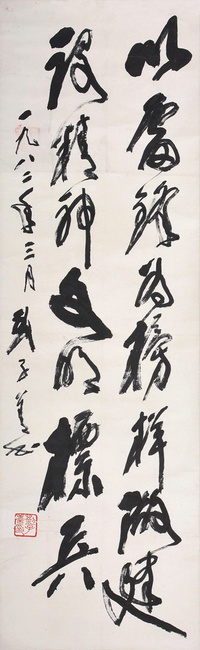 以雷锋为榜样做建
设精神文明标兵
一九八二年三月 刘子善书